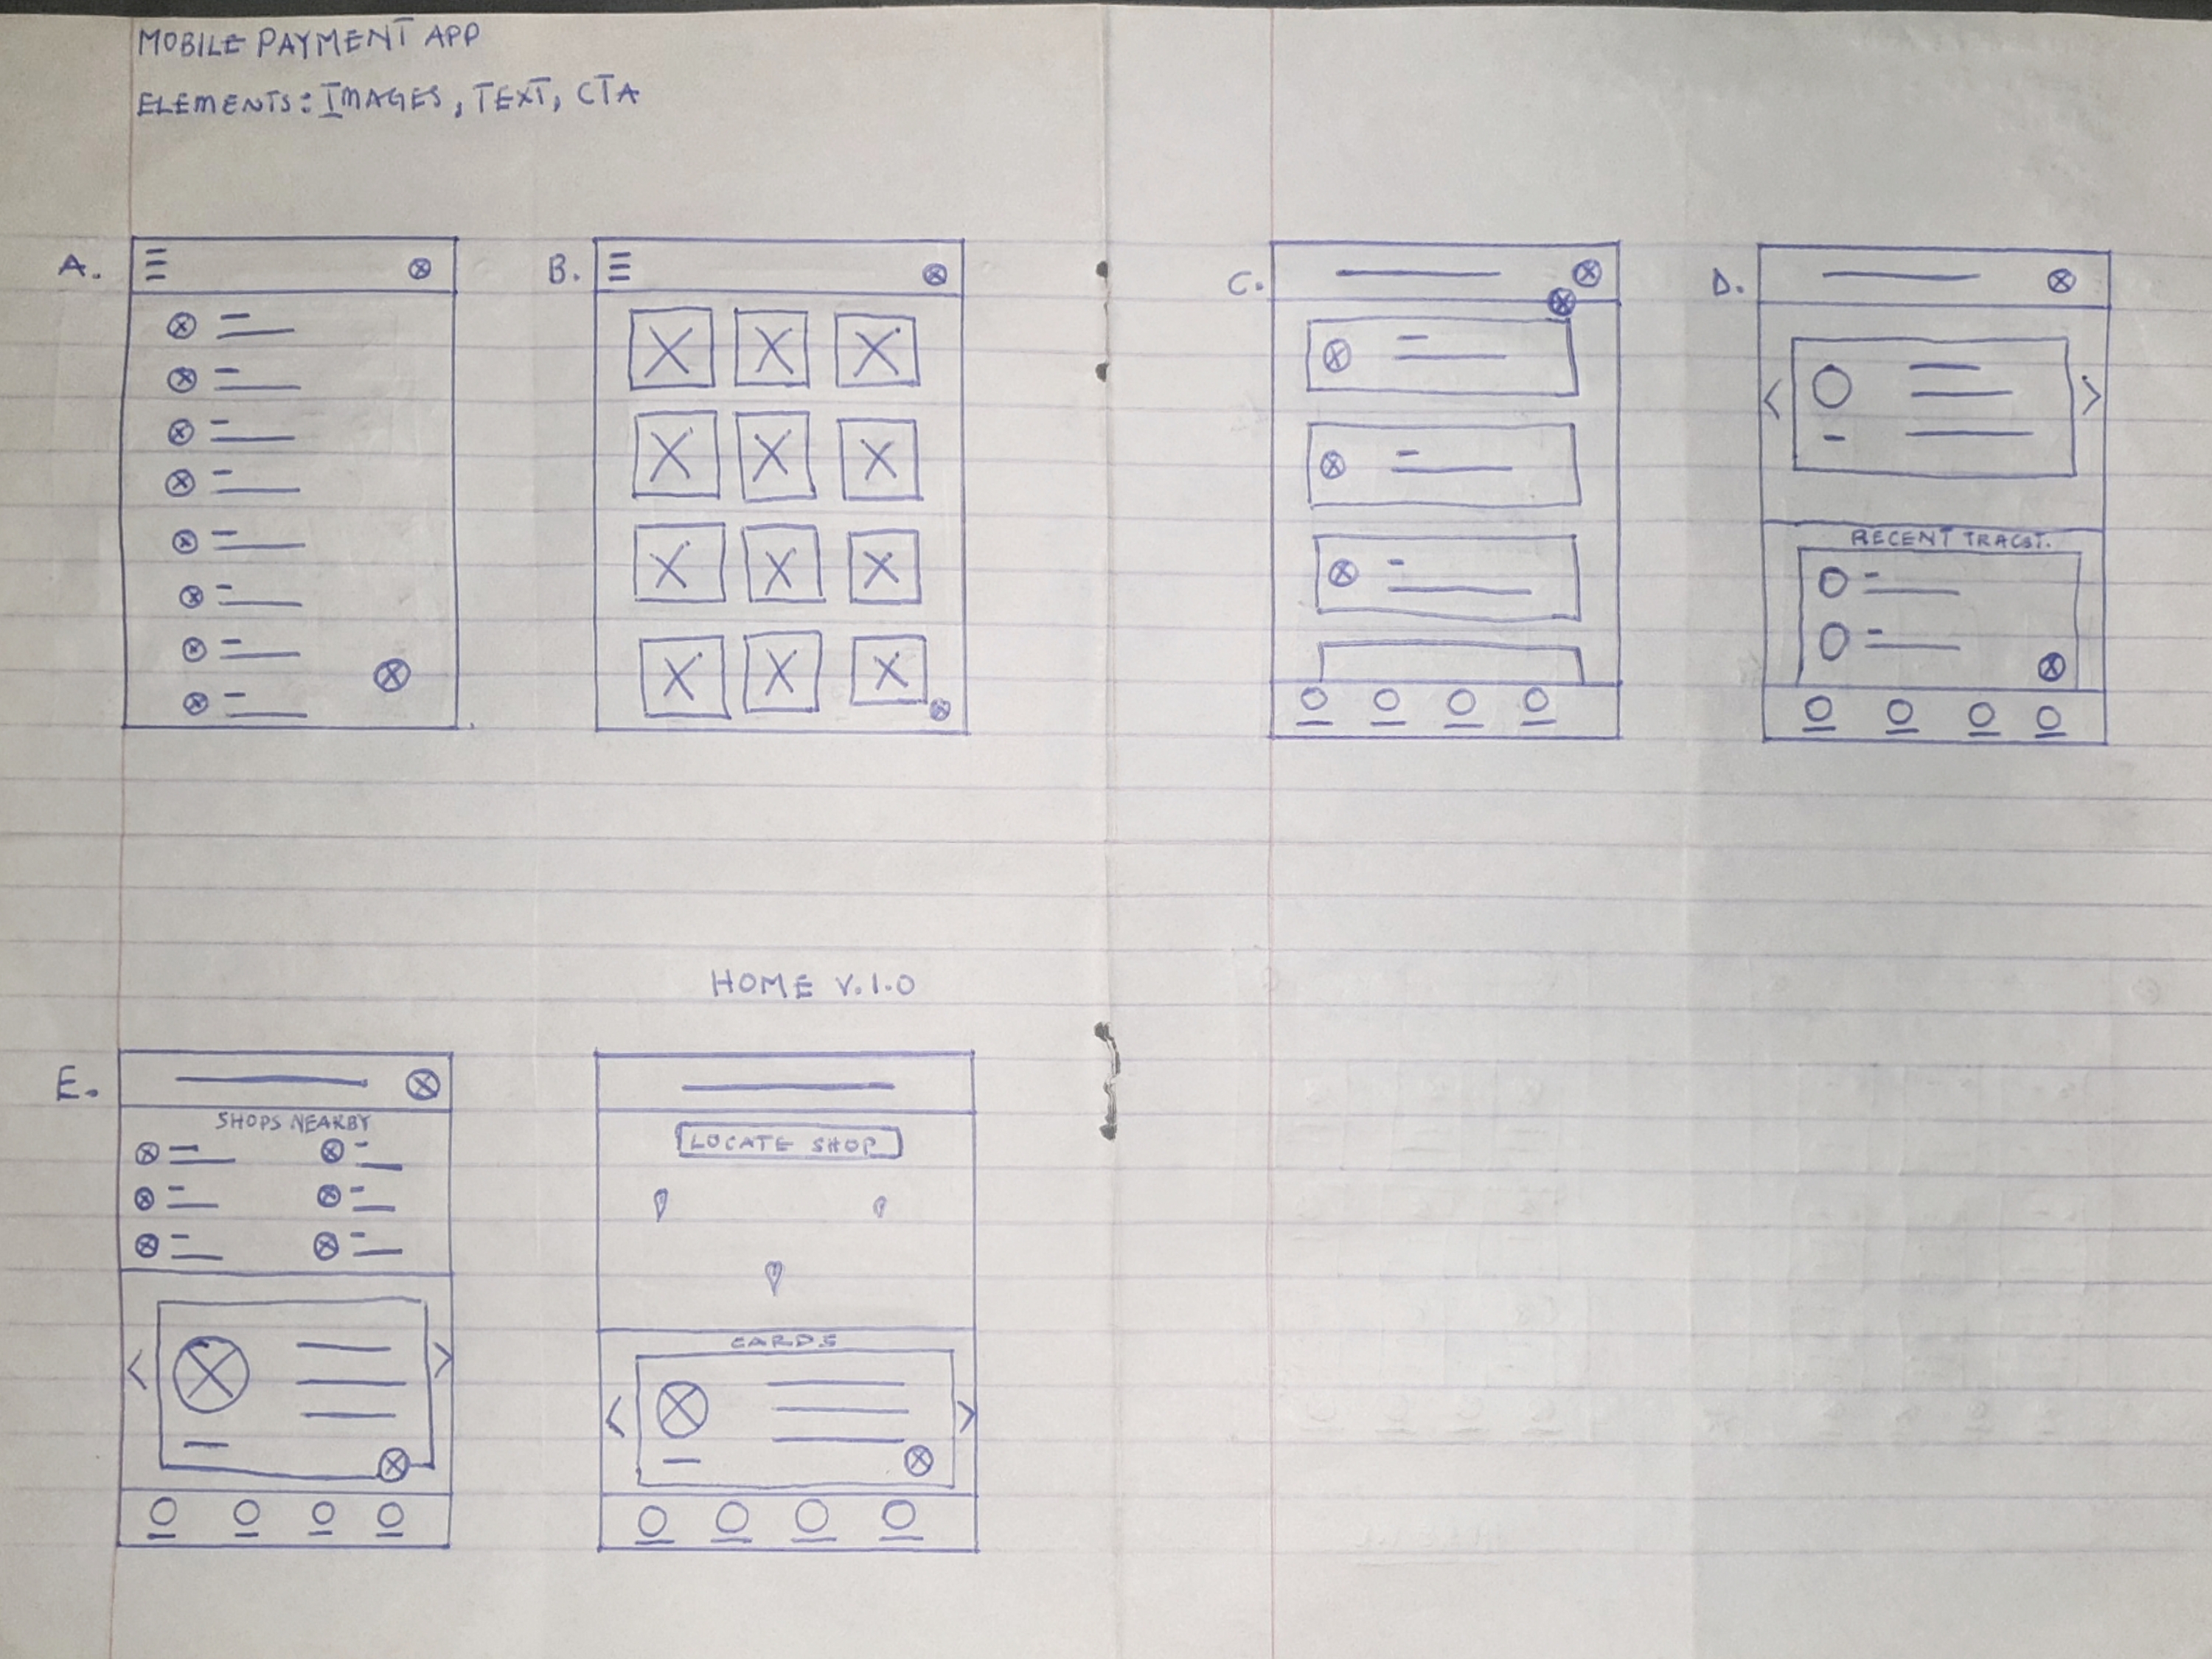 MOBILE PAYMENT APP
ELEMENTS: IMAGES, TEXT, CTA
A.
B.
C.
D.
RECENT TRACST.
HOME V.1.0
E.
SHOPS NEARBY
LOCATE SHOP
CARDS